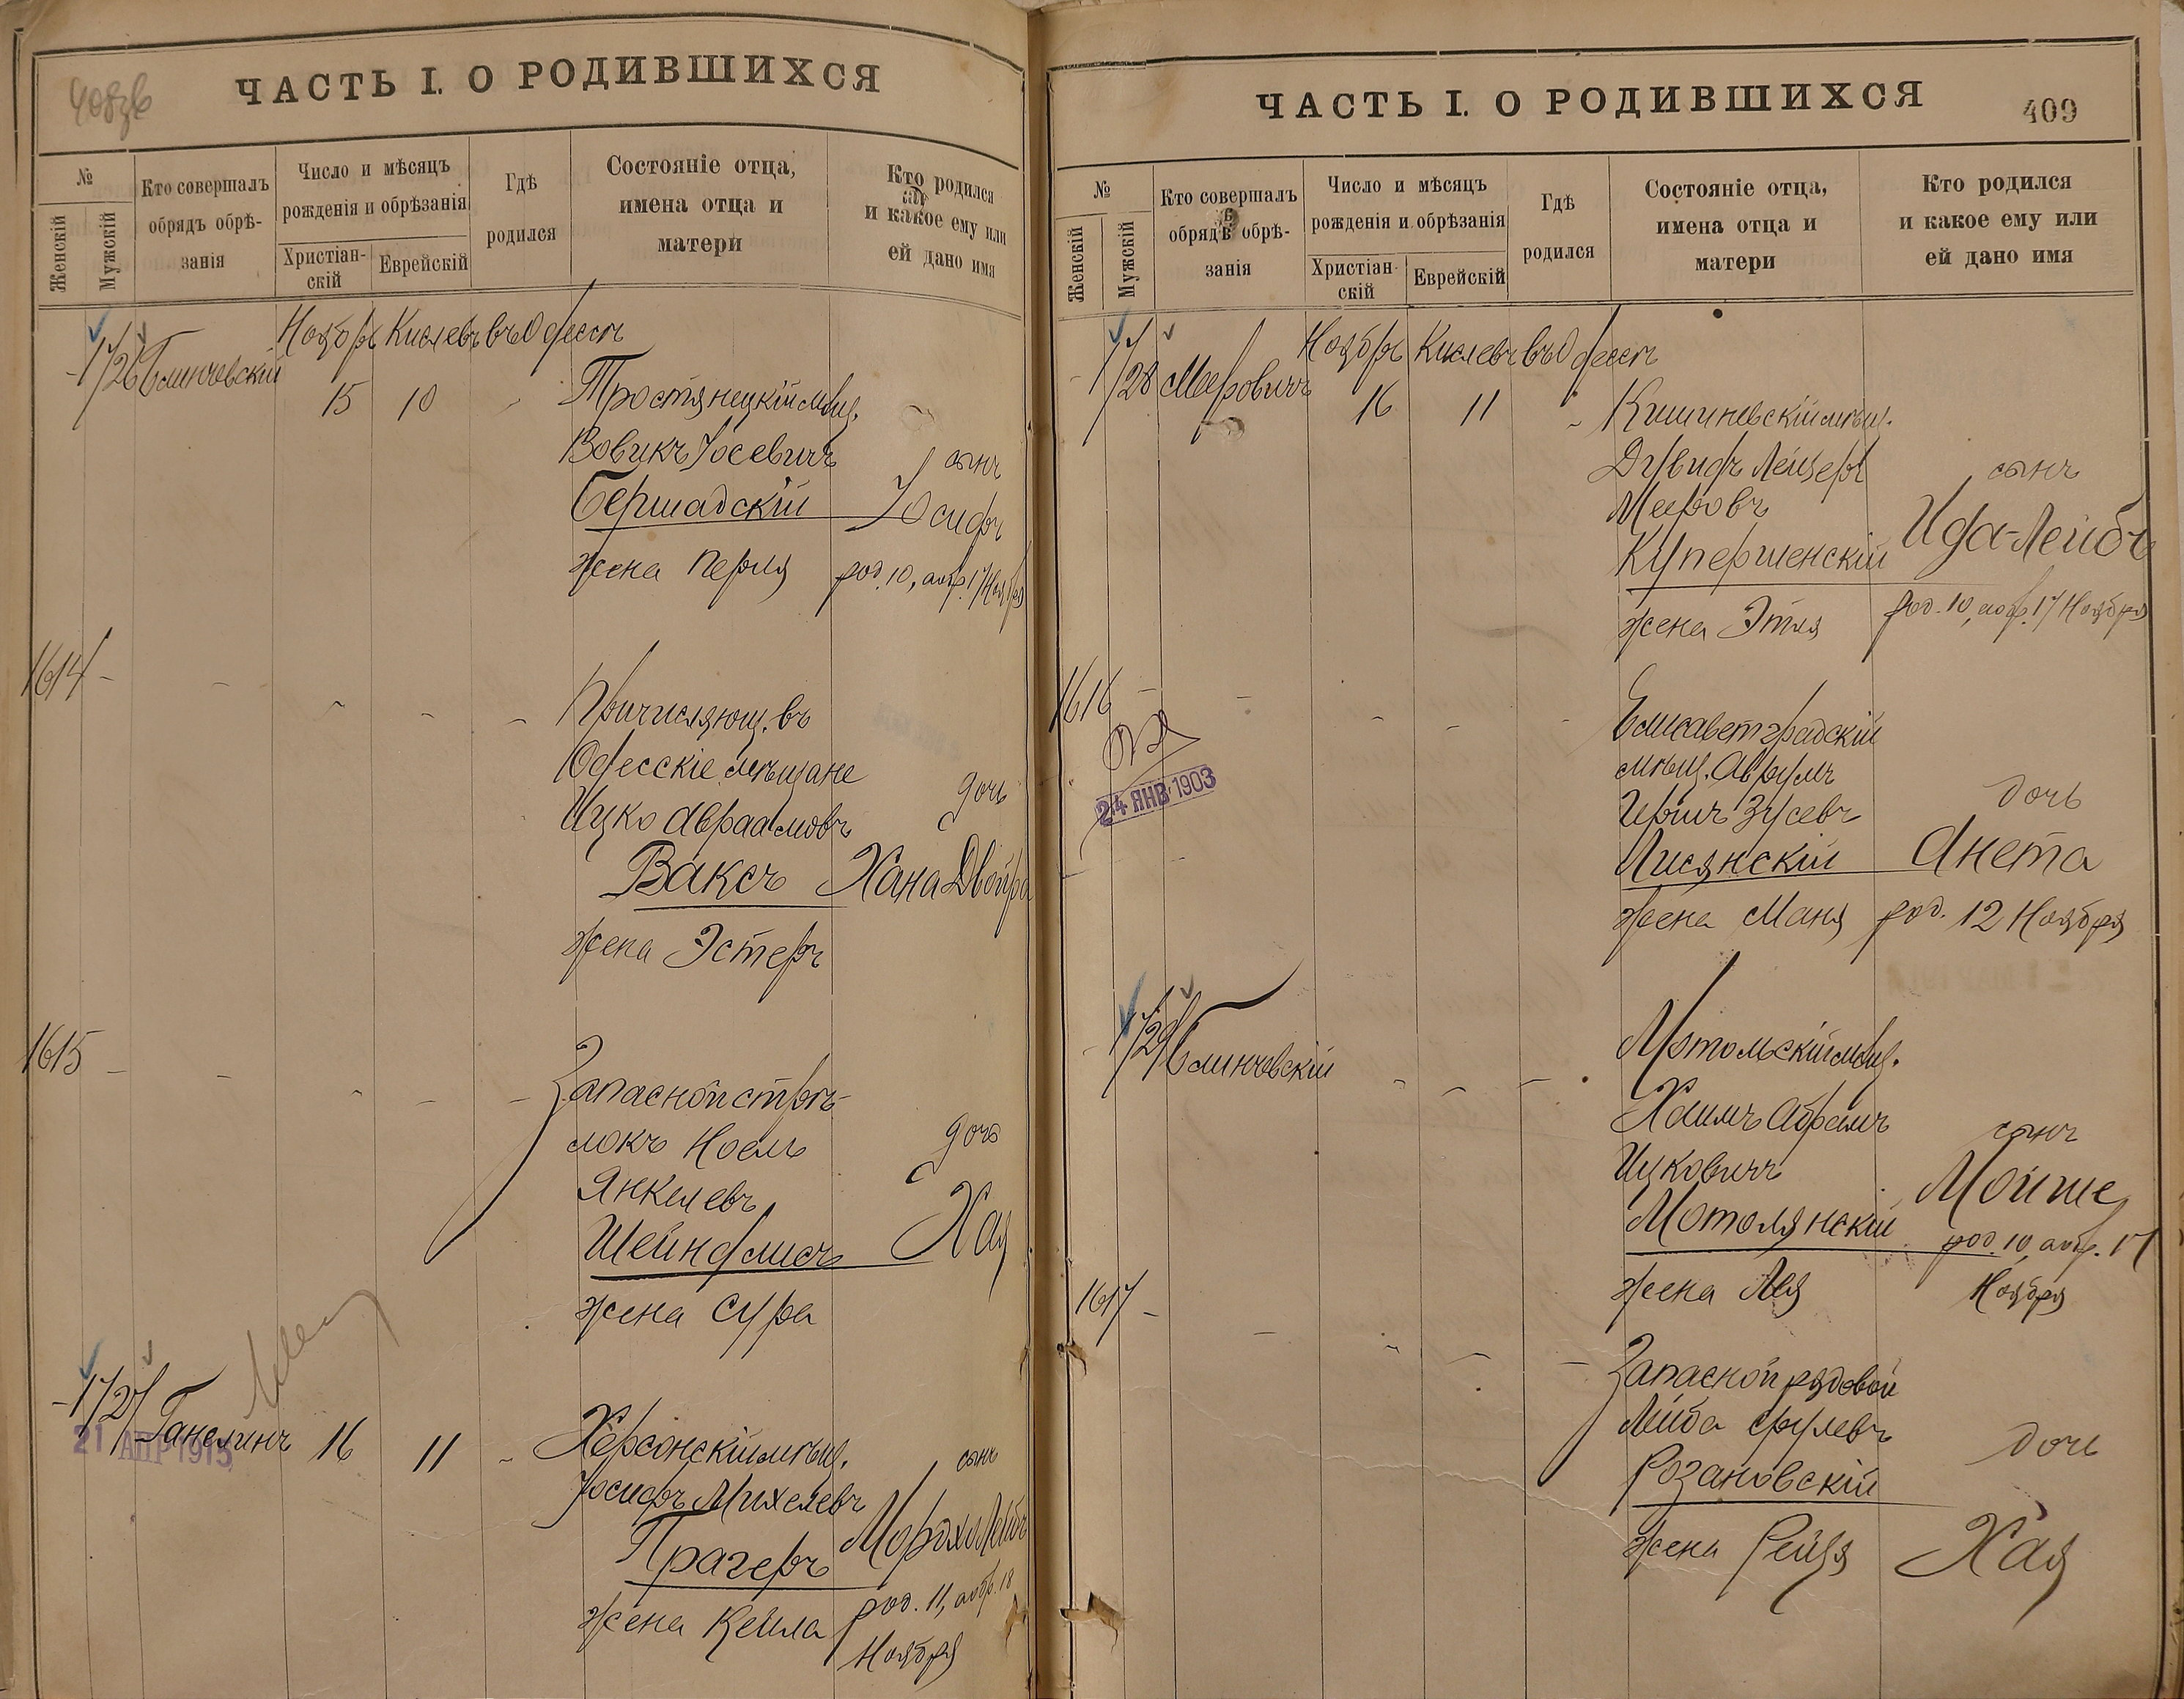 408 об
ЧАСТЬ I. О РОДИВШИХСЯ
№
Женскій
Мужскій
Кто совершалъ
обрядъ обрѣ-
занія
Число и мѣсяцъ
рожденія и обрѣзанія
Христіан-
скій
Еврейскій
Гдѣ
родился
Состояніе отца,
имена отца и
матери
Кто родился
и какое ему или
ей дано имя
1726 Блинчевскій
Ноябрь Кислевъ въ Одессѣ
15 10
Тростянецкій мѣщ.
Вовикъ Іосевичъ
Бершадскій
жена Перля
сынъ
Іосифъ
род. 10, обр. 17 Ноября
1614
Причисляющ. въ
Одесскіе мѣщане
Ицко Авраамовъ
Ваксъ
жена Эстеръ
дочь
Хана Двойра
1615
Запасной стрѣ-
локъ Ноемъ
Янкелевъ
Шейнфлисъ
жена Сура
дочь
Хая
1727 Ганелинъ 16 11
21 АПР 1915
Херсонскій мѣщ.
Іосифъ Михелевъ
Прагеръ
жена Кейла
сынъ
Мордхо Лейбъ
род. 11, обр. 18
Ноября
ЧАСТЬ I. О РОДИВШИХСЯ
409
№
Женскій
Мужскій
Кто совершалъ
обрядъ обрѣ-
занія
Число и мѣсяцъ
рожденія и обрѣзанія
Христіан-
скій
Еврейскій
Гдѣ
родился
Состояніе отца,
имена отца и
матери
Кто родился
и какое ему или
ей дано имя
1728 Меровичъ
Ноябрь Кислевъ въ Одессѣ
16 11
Кишиневскій мѣщ.
Дувидъ Лейзеръ
Меровъ
Купершенскій
жена Этля
сынъ
Ида-Лейбъ
род. 10, обр. 17 Ноября
1616
24 ЯНВ 1903
Елисаветградскій
мѣщ. Аврумъ
Гершъ Зусевъ
Лисянскій
жена Маня
дочь
Анета
род. 12 Ноября
1729 Блинчевскій
Мотольскій мѣщ.
Хаимъ Абрамъ
Ицковичъ
Мотолянскій
жена Лея
сынъ
Мойше
род. 10, обр. 17
Ноября
1617
Запасной рядовой
Лейба Срулевъ
Розановскій
жена Рейзя
дочь
Хая